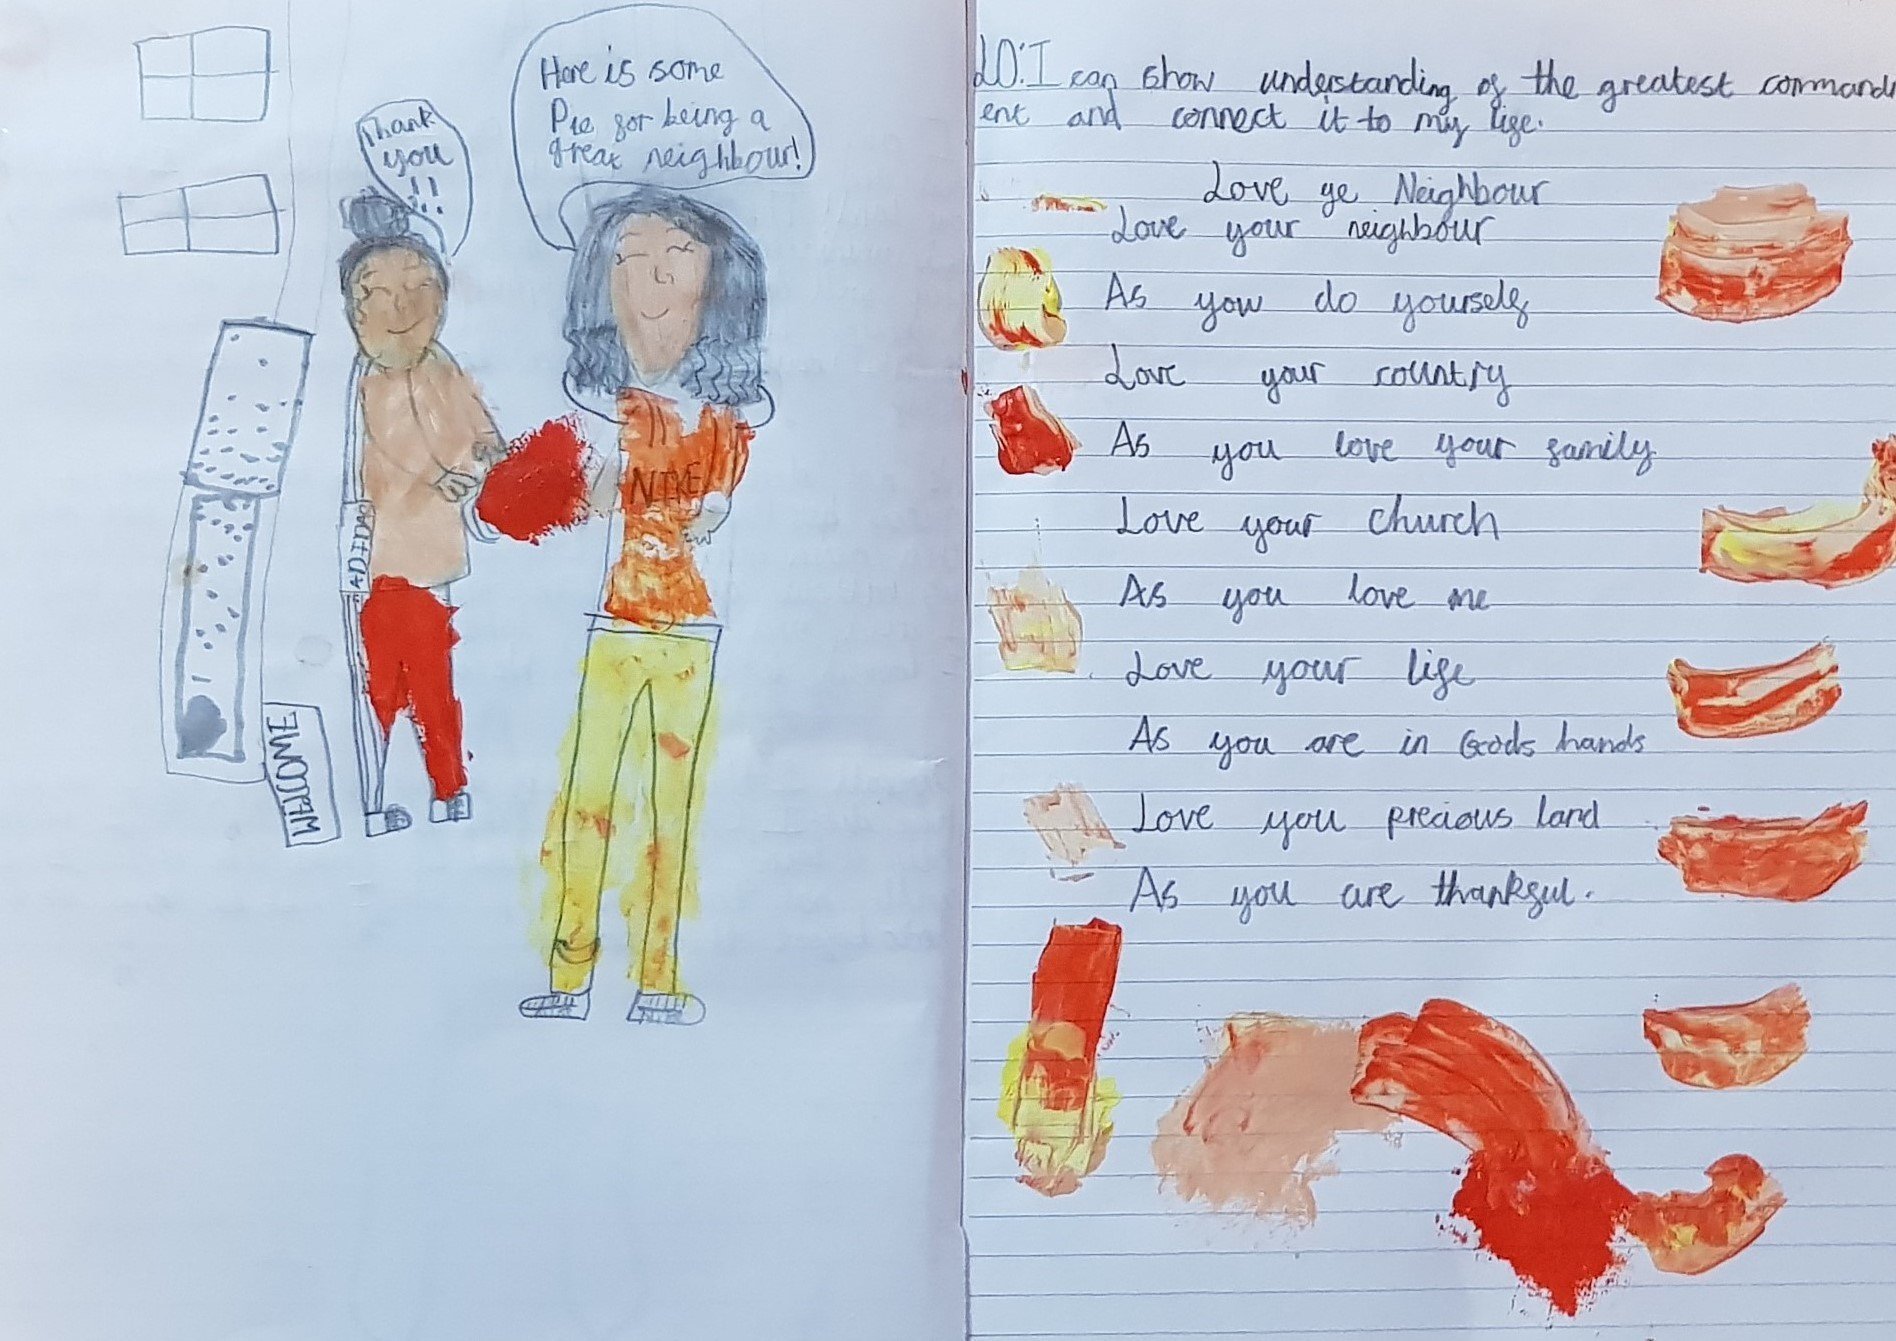 Thank
you
!!
Here is some
Pie for being a
great neighbour!
NIKE
ADIDAS
WELCOME
LO: I can show understanding of the greatest commandm
ent and connect it to my life.
Love ye Neighbour
Love your neighbour
As you do yourself
Love your country
As you love your family
Love your church
As you love me
Love your life
As you are in Gods hands
Love you precious land
As you are thankful.